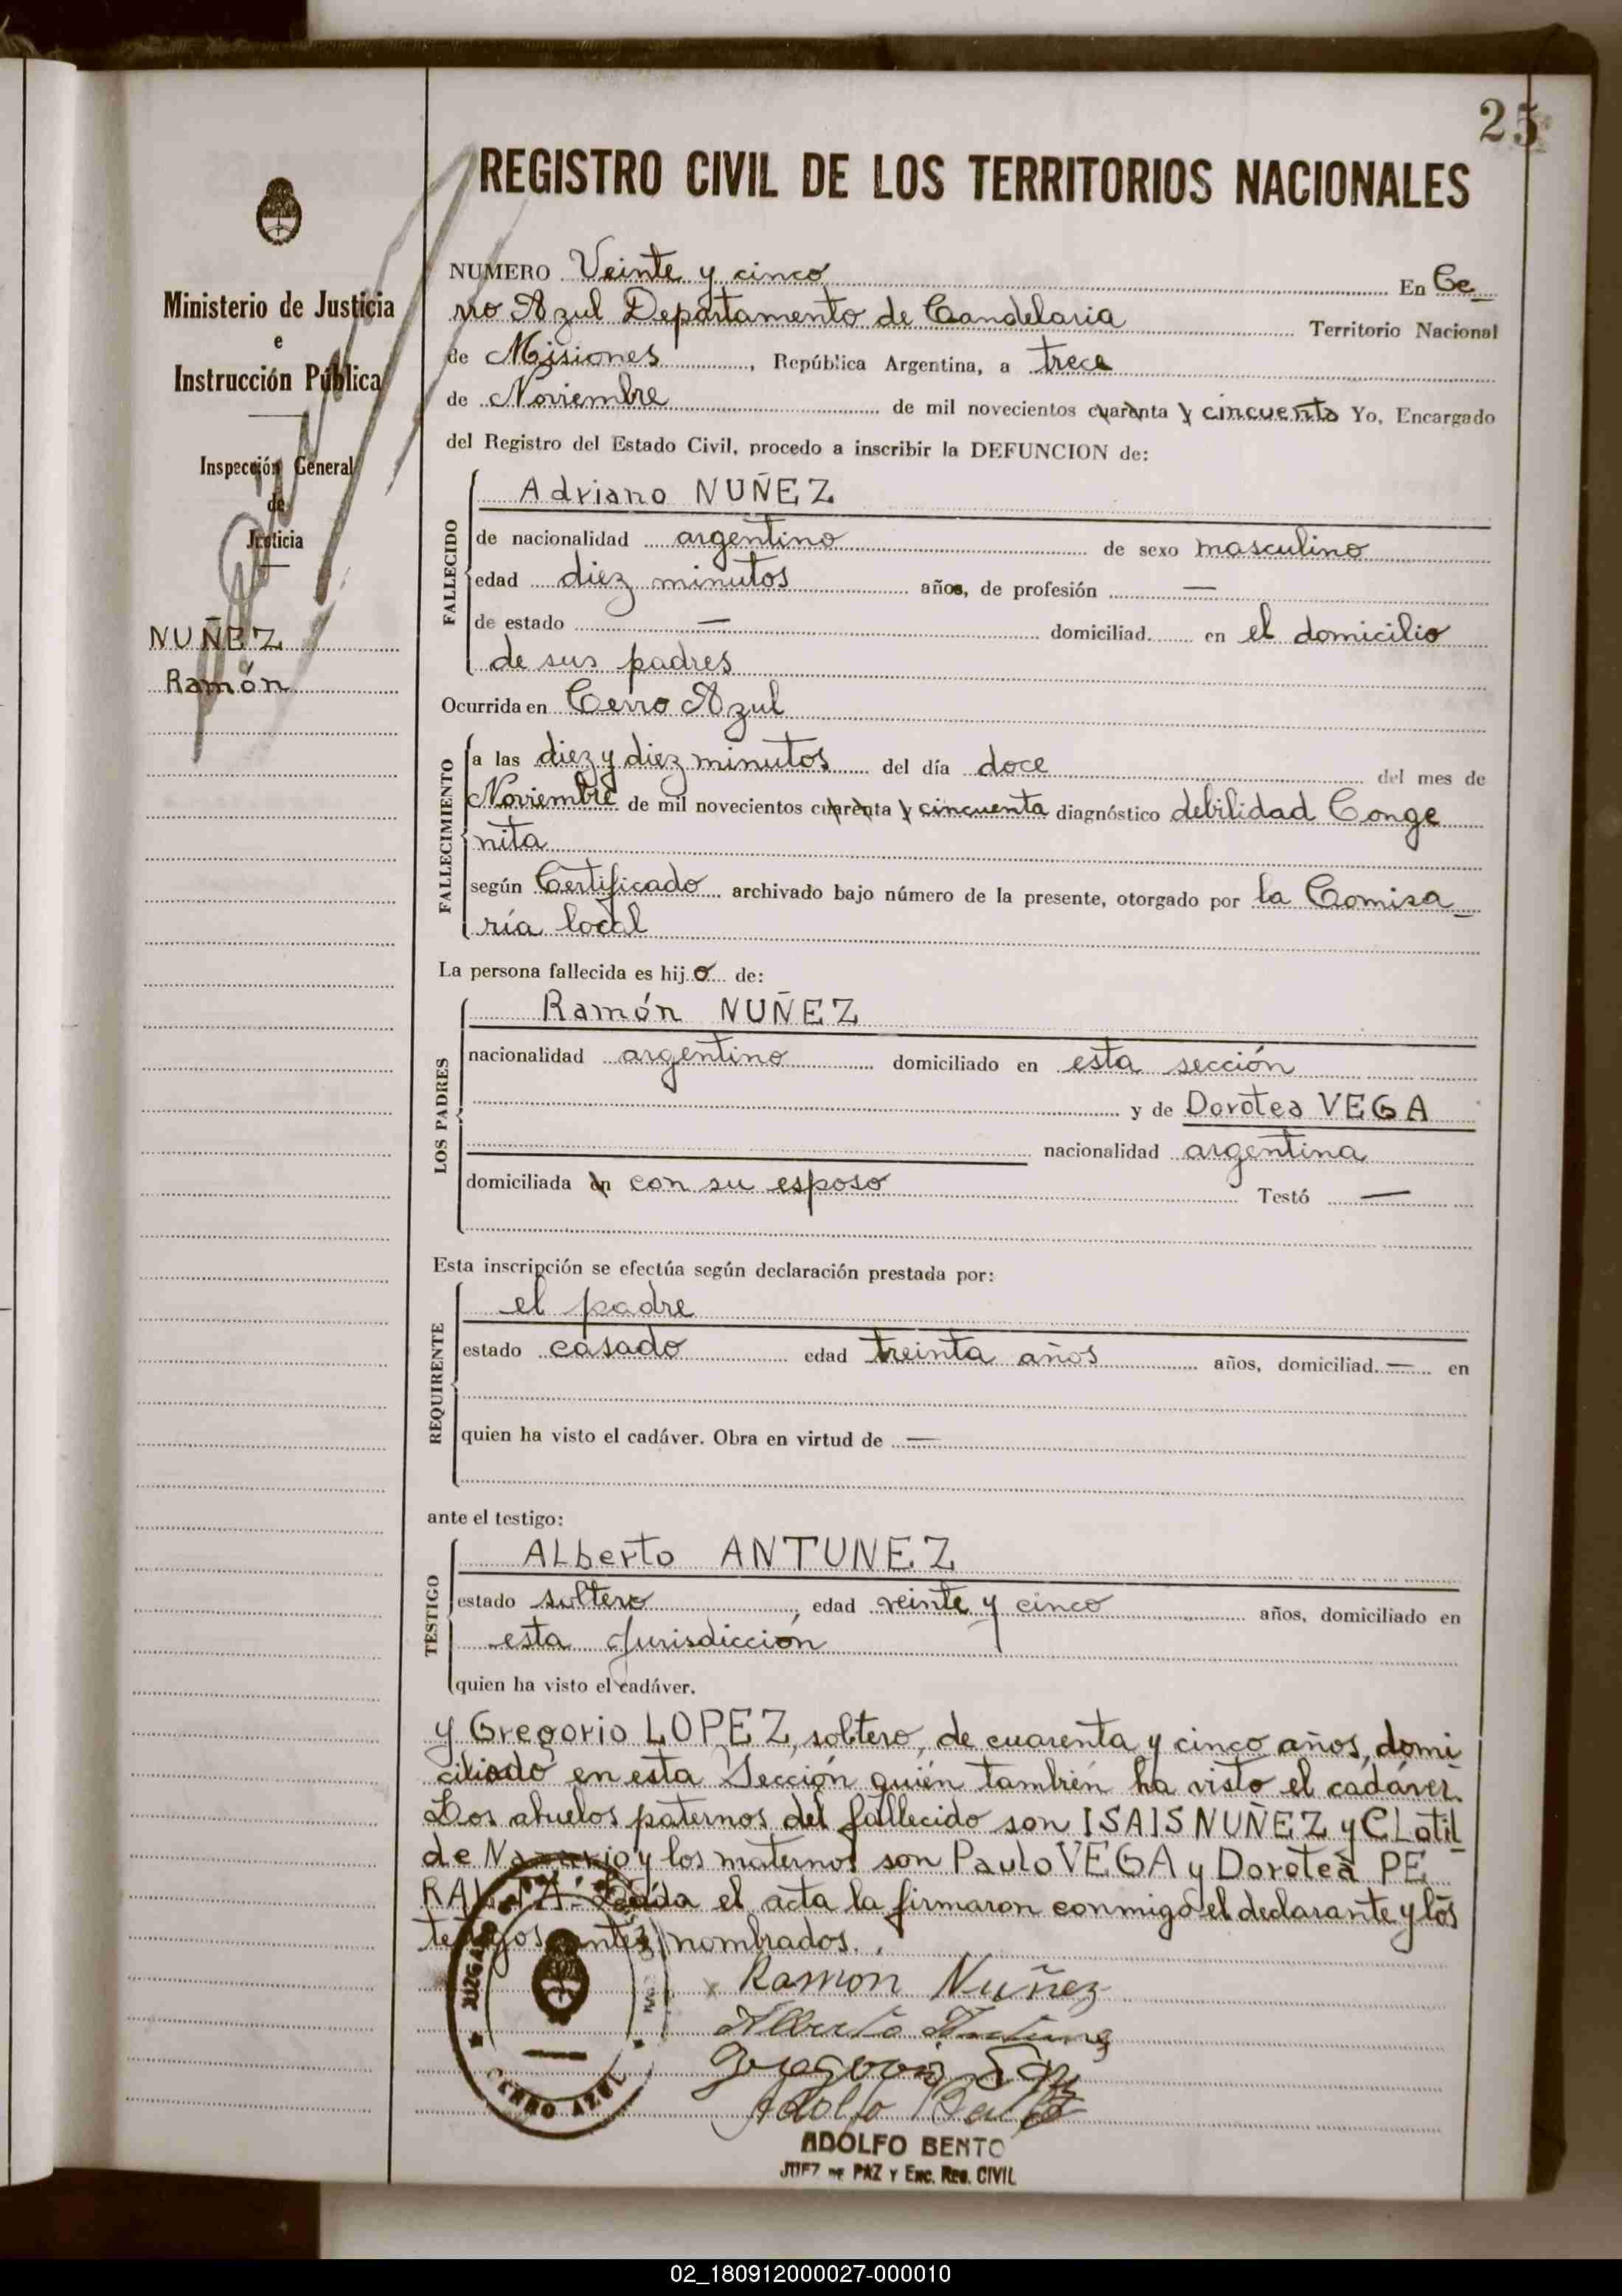 25
REGISTRO CIVIL DE LOS TERRITORIOS NACIONALES
Ministerio de Justicia
e
Instrucción Pública
Inspección General
de
Justicia
NUÑEZ
Ramón
NUMERO Veinte y cinco En Ce_
rro Azul Departamento de Candelaria Territorio Nacional
de Misiones, República Argentina, a trece
de Noviembre de mil novecientos cuarenta y cincuenta Yo, Encargado
del Registro del Estado Civil, procedo a inscribir la DEFUNCION de:
FALLECIDO
Adriano NUÑEZ
de nacionalidad argentino de sexo masculino
edad diez minutos años, de profesión —
de estado — domiciliad en el domicilio
de sus padres
Ocurrida en Cerro Azul
FALLECIMIENTO
a las diez y diez minutos del día doce del mes de
Noviembre de mil novecientos cuarenta y cincuenta diagnóstico debilidad Conge
nita
según Certificado archivado bajo número de la presente, otorgado por la Comisa_
ría local
La persona fallecida es hijo de:
LOS PADRES
Ramón NUÑEZ
nacionalidad argentino domiciliado en esta sección
y de Dorotea VEGA
nacionalidad argentina
domiciliada en con su esposo Testó —
Esta inscripción se efectúa según declaración prestada por:
REQUIRENTE
el padre
estado casado edad treinta años años, domiciliad — en
quien ha visto el cadáver. Obra en virtud de —
ante el testigo:
TESTIGO
ALberto ANTUNEZ
estado soltero edad veinte y cinco años, domiciliado en
esta Jurisdicción
quien ha visto el cadáver.
y Gregorio LOPEZ, soltero, de cuarenta y cinco años, domi
ciliado en esta Sección quién también ha visto el cadáver.
Los abuelos paternos del fallecido son ISAIS NUÑEZ y CLotil_
de y los maternos son Paulo VEGA y Dorotea PE
Leída el acta la firmaron conmigo el declarante y los
testigos antes nombrados.
Ramon Nuñez
Alberto Antunez
Gregorio
Adolfo Bento
JUZGA
CERRO AZUL
ADOLFO BENTO
JUEZ DE PAZ Y Enc. Reg. CIVIL
02_180912000027-000010